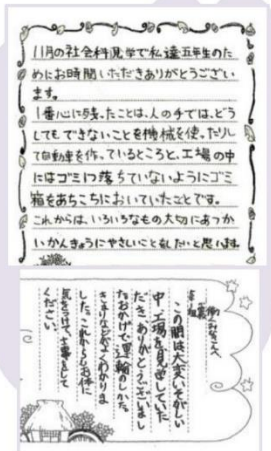 11月の社会科見学で私達五年生のた
めにお時間いただきありがとうござい
ます。
1番心に残ったことは、人の手では、どう
してもできないことを機械を使ったりし
て自動車を作っているところと、工場の中
にはゴミ1つ落ちていないようにゴミ
箱をあちこちにおいていたことです。
これからは、いろいろなもの大切にあつか
いかんきょうにやさしいことをしたいと思います。
この間は大変いそがしい
中、工場を見学していた
だきありがとうございまし
た。おかげで運輪のしかた
きけんなどがよくわかりま
した。これからもお体に
気をつけて、仕事をして
ください。